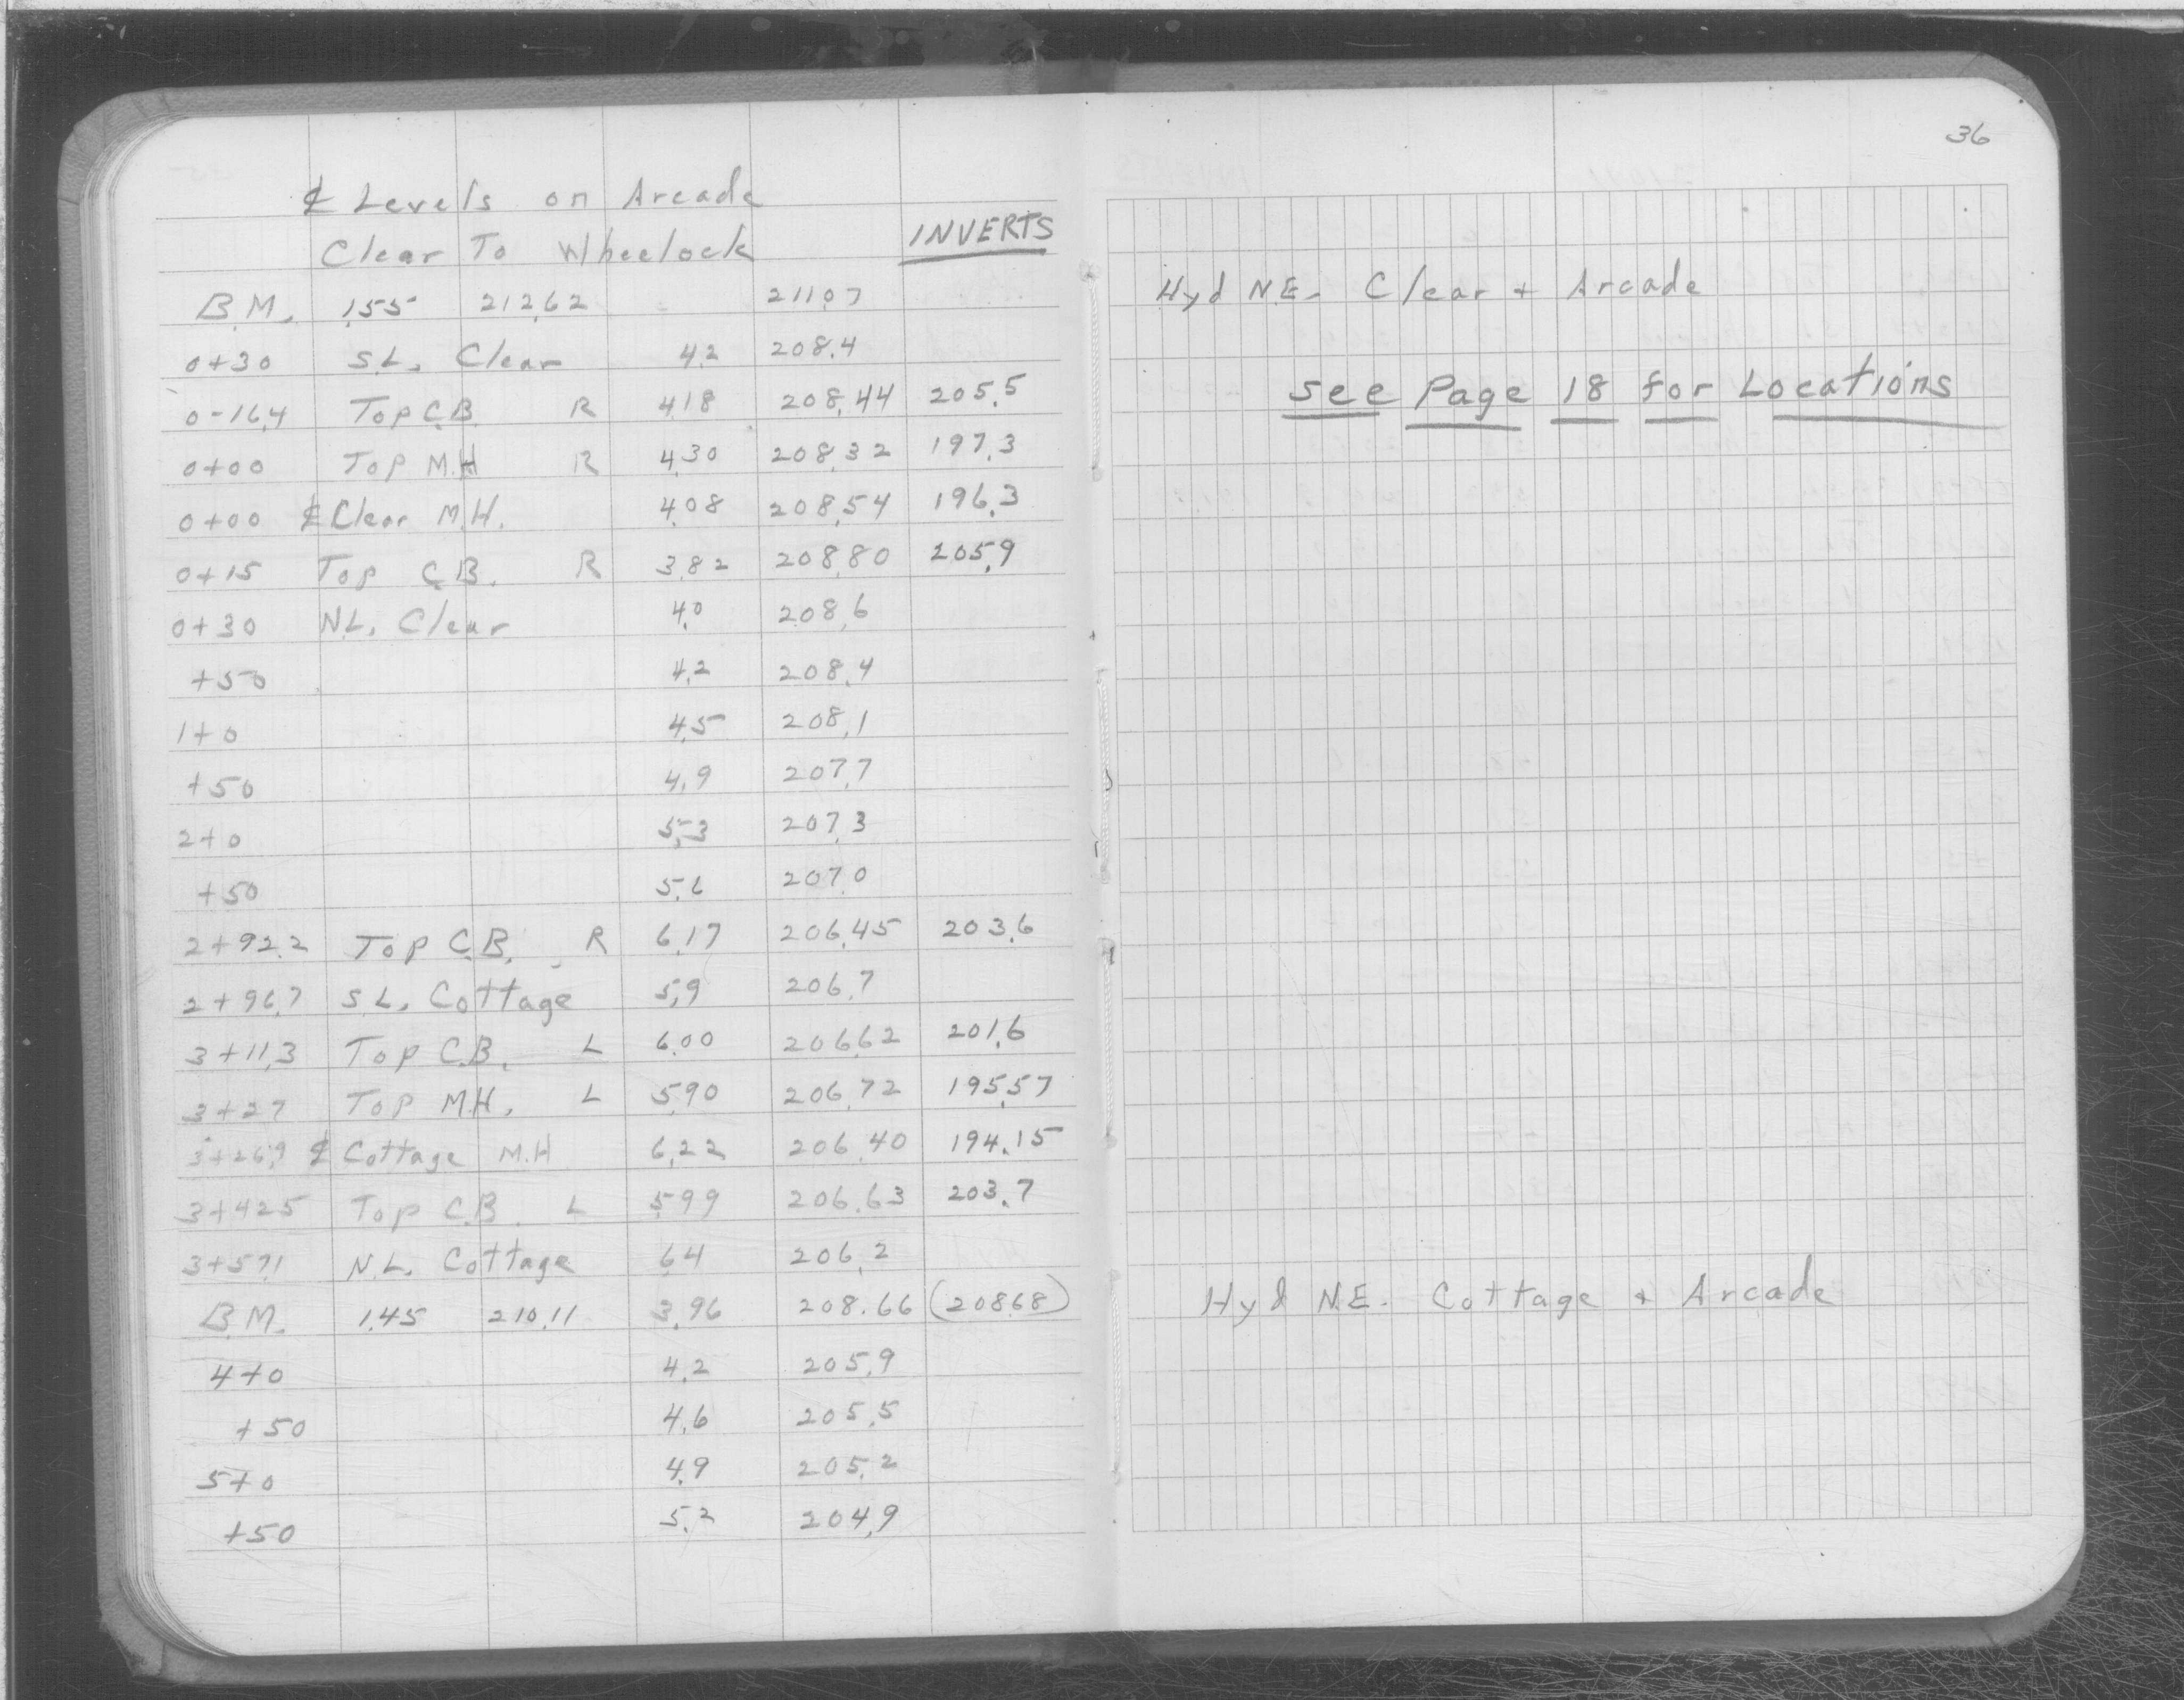 36
℄ Levels on Arcade
Clear To Wheelock INVERTS
B.M. 1.55 212.62 211.07 Hyd N.E. Clear + Arcade
0+30 S.L. Clear 4.2 208.4
0-16.4 Top C.B. R 4.18 208.44 205.5 See Page 18 for Locations
0+00 Top M.H R 4.30 208.32 197.3
0+00 ℄ Clear M.H. 4.08 208.54 196.3
0+15 Top C.B. R 3.82 208.80 205.9
0+30 N.L. Clear 4.0 208.6
+50 4.2 208.4
1+0 4.5 208.1
+50 4.9 207.7
2+0 5.3 207.3
+50 5.6 207.0
2+92.2 Top C.B. R 6.17 206.45 203.6
2+96.7 S.L. Cottage 5.9 206.7
3+11.3 Top C.B. L 6.00 206.62 201.6
3+27 Top M.H. L 5.90 206.72 195.57
3+26.9 ℄ Cottage M.H 6.22 206.40 194.15
3+42.5 Top C.B. L 5.99 206.63 203.7
3+57.1 N.L. Cottage 6.4 206.2
B.M. 1.45 210.11 3.96 208.66 (208.68) Hyd N.E. Cottage + Arcade
4+0 4.2 205.9
+50 4.6 205.5
5+0 4.9 205.2
+50 5.2 204.9